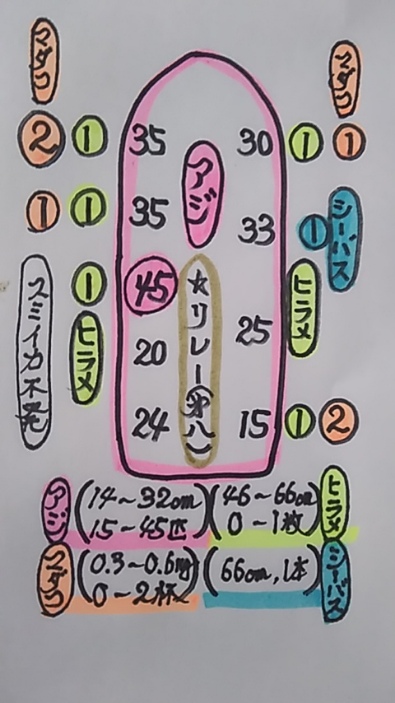 マダコ
マダコ
2 1 35 30 1 1
アジ
1 1 35 33 1 シーバス
スミイカ不発
1 45 ヒラメ
★リレー(第八)
ヒラメ 20 25
24 15 1 2
アジ (14~32cm 15~45匹)
(46~66cm 0~1枚) ヒラメ
マダコ (0.3~0.6kg 0~2杯)
(66cm,1本) シーバス